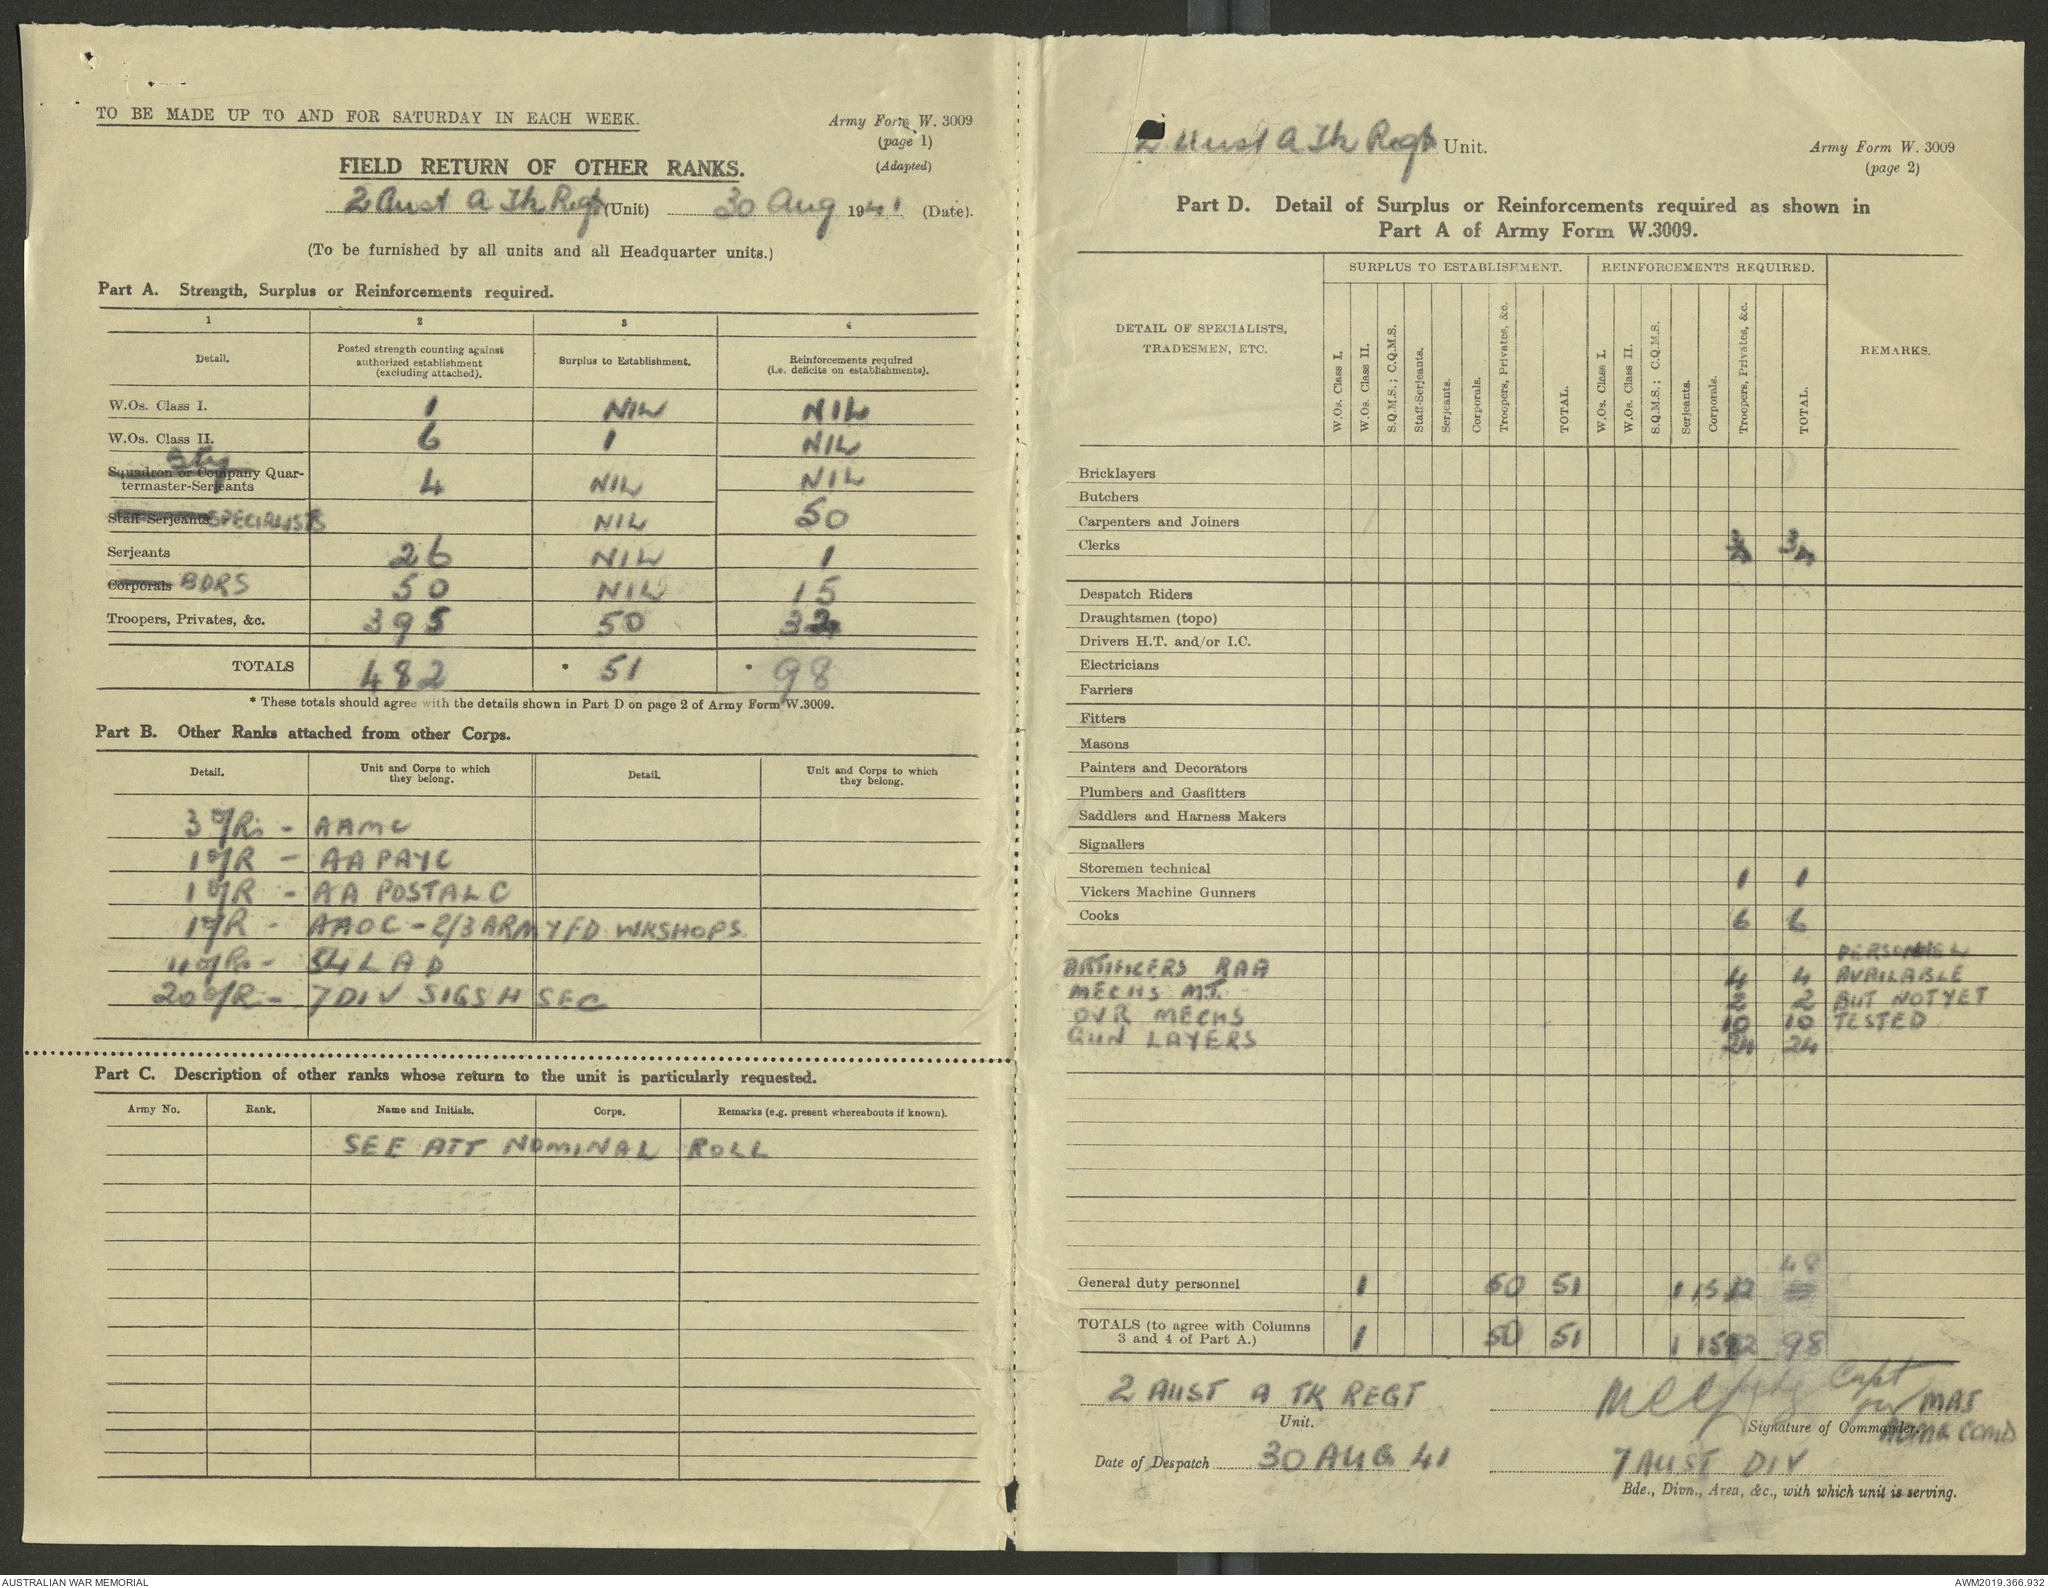 TO BE MADE UP TO AND FOR SATURDAY IN EACH WEEK.
Army Form W. 3009
(page 1)
(Adapted)
FIELD RETURN OF OTHER RANKS.
2 Aust A Tk Regt (Unit) 30 Aug 1941 (Date).
(To be furnished by all units and all Headquarter units.)
Part A. Strength, Surplus or Reinforcements required.
1 2 3 4
Detail. Posted strength counting against authorized establishment (excluding attached). Surplus to Establishment. Reinforcements required (i.e. deficits on establishments).
W.Os. Class I. 1 NIL NIL
W.Os. Class II. 6 1 NIL
Bty
Squadron or Company Quar-
termaster-Serjeants 4 NIL NIL
Staff-Serjeants SPECIALISTS NIL 50
Serjeants 26 NIL 1
Corporals BDRS 50 NIL 15
Troopers, Privates, &c. 395 50 32
TOTALS 482 * 51 * 98
* These totals should agree with the details shown in Part D on page 2 of Army Form W.3009.
Part B. Other Ranks attached from other Corps.
Detail. Unit and Corps to which they belong. Detail. Unit and Corps to which they belong.
3 O/Rs - AAMC
1 O/R - AA PAY C
1 O/R - AA POSTAL C
1 O/R - AAOC - 2/3 ARMY FD WKSHOPS
11 O/Rs - 54 LAD
20 O/R - 7 DIV SIGS H SEC
Part C. Description of other ranks whose return to the unit is particularly requested.
Army No. Rank. Name and Initials. Corps. Remarks (e.g. present whereabouts if known).
SEE ATT NOMINAL ROLL
2 Aust A Tk Regt Unit.
Army Form W. 3009
(page 2)
Part D. Detail of Surplus or Reinforcements required as shown in
Part A of Army Form W.3009.
DETAIL OF SPECIALISTS, TRADESMEN, ETC. SURPLUS TO ESTABLISHMENT. REINFORCEMENTS REQUIRED. REMARKS.
W.Os. Class I. W.Os. Class II. S.Q.M.S.; C.Q.M.S. Staff-Serjeants. Serjeants. Corporals. Troopers, Privates, &c. TOTAL. W.Os. Class I. W.Os. Class II. S.Q.M.S.; C.Q.M.S. Serjeants. Corporals. Troopers, Privates, &c. TOTAL.
Bricklayers
Butchers
Carpenters and Joiners
Clerks 3 3
Despatch Riders
Draughtsmen (topo)
Drivers H.T. and/or I.C.
Electricians
Farriers
Fitters
Masons
Painters and Decorators
Plumbers and Gasfitters
Saddlers and Harness Makers
Signallers
Storemen technical 1 1
Vickers Machine Gunners
Cooks 6 6
PERSONNEL
ARTIFICERS RAA 4 4 AVAILABLE
MECHS M.T. 2 2 BUT NOT YET
DVR MECHS 10 10 TESTED
GUN LAYERS 24 24
48
General duty personnel 1 50 51 1 15 32
TOTALS (to agree with Columns
3 and 4 of Part A.) 1 50 51 1 15 82 98
2 AUST A TK REGT
Unit.
Capt
for MAJ
Signature of Commander.
ADMG COMD
Date of Despatch 30 AUG 41
7 AUST DIV
Bde., Divn., Area, &c., with which unit is serving.
AUSTRALIAN WAR MEMORIAL
AWM2019.366.932